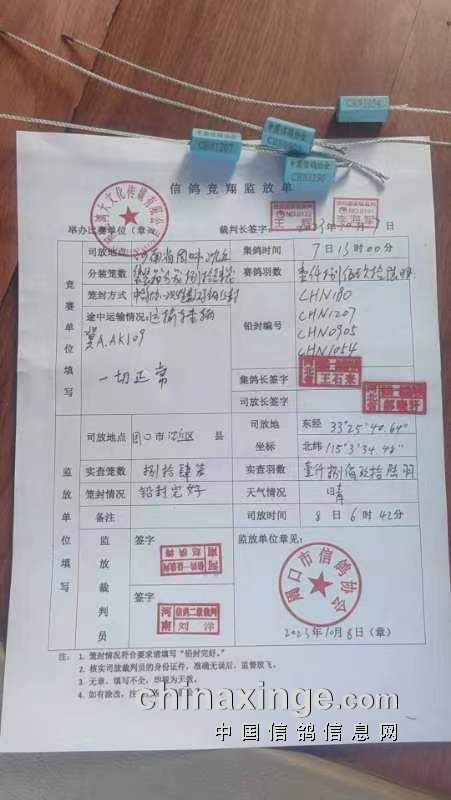 CHN1054
中国信鸽协会
CHN1207
中国信鸽协会
中国信鸽协会
信鸽竞翔监放单
举办比赛单位(章)
裁判长签字
2023年10月7日
竞赛单位填写
司放地点
河南省周口沈丘
集鸽时间
7日15时00分
分装笼数
赛鸽羽数
笼封方式
铅封编号
CHN180
CHN1207
CHN0905
CHN1054
途中运输情况:
冀A.AK109
一切正常
集鸽长签字
司放长签字
监放单位填写
司放地点
周口市沈丘区 县
司放地
坐标
东经 33°25'40.64"
北纬 115°3'34.48"
实查笼数
捌拾肆笼
实查羽数
笼封情况
铅封完好
天气情况
晴
备注
司放时间
8日6时42分
监放裁判员
签字
签字
河南
信鸽二级裁判
刘洋
监放单位章见:
周口市信鸽协会
2023年10月8日(章)
注: 1. 笼封情况符合要求请填写“铅封完好。”
2. 核实司放裁判员的身份证件,准确无误后,监督放飞。
3. 无章、填写不全,即视为无效。
4. 如有涂改,注
chinaxinge.com
中国信鸽信息网